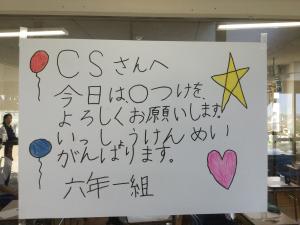 CSさんへ
今日は、○つけを
よろしくお願いします。
いっしょうけんめい
がんばります。
六年一組